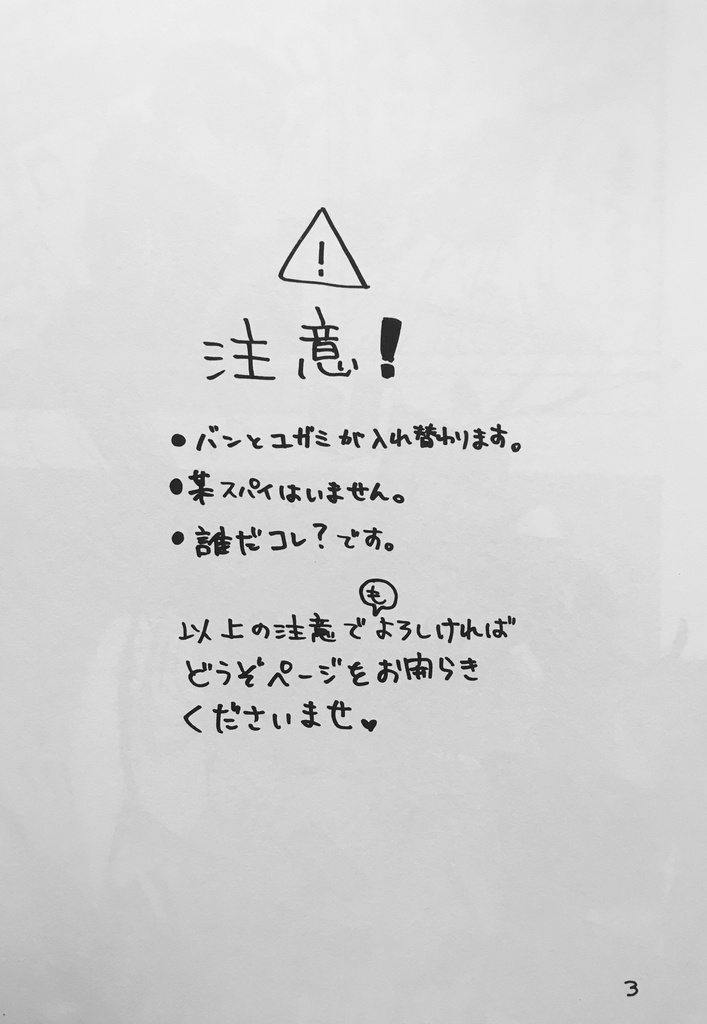 !
注意!
●バンとユガミが入れ替わります。
●某スパイはいません。
●誰だコレ?です。
も
以上の注意でよろしければ
どうぞページをお開らき
くださいませ♥
3